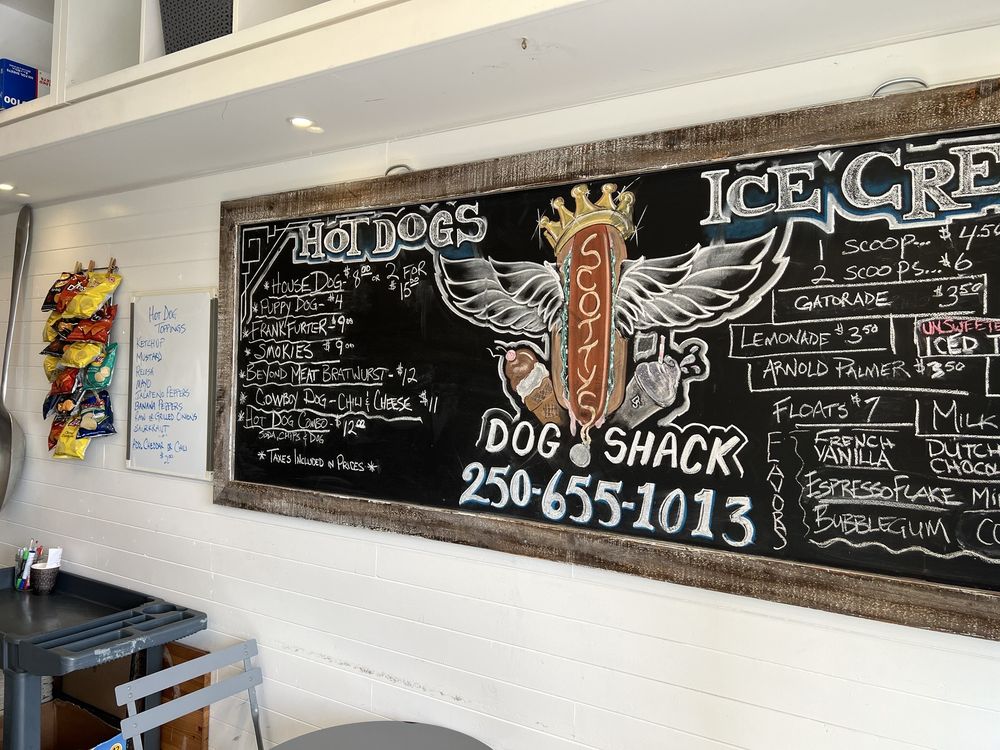 HOT DOGS
HOUSE DOG - $8.00 OR 2 FOR $15.00
* PUPPY DOG - $4
* FRANKFURTER - $9.00
* SMOKIES $9.00
* BEYOND MEAT BRATWURST - $12
* COWBOY DOG - CHILI & CHEESE $11
* HOT DOG COMBO - $12.00
SODA CHIPS & DOG
* TAXES INCLUDED IN PRICES *
SCOTTYS
DOG SHACK
250-655-1013
ICE CRE
1 SCOOP... $4.50
2 SCOOPS... $6
GATORADE $3.50
LEMONADE $3.50
UNSWEETE
ICED T
ARNOLD PALMER $3.50
FLOATS $7
MILK
FLAVORS
FRENCH VANILLA
DUTCH CHOCO
ESPRESSO FLAKE
BUBBLEGUM
HOT DOG
TOPPINGS
KETCHUP
MUSTARD
RELISH
MAYO
JALAPENO PEPPERS
BANANA PEPPERS
RAW OR GRILLED ONIONS
SAUERKRAUT
ADD CHEDDAR OR CHILI
$2.00